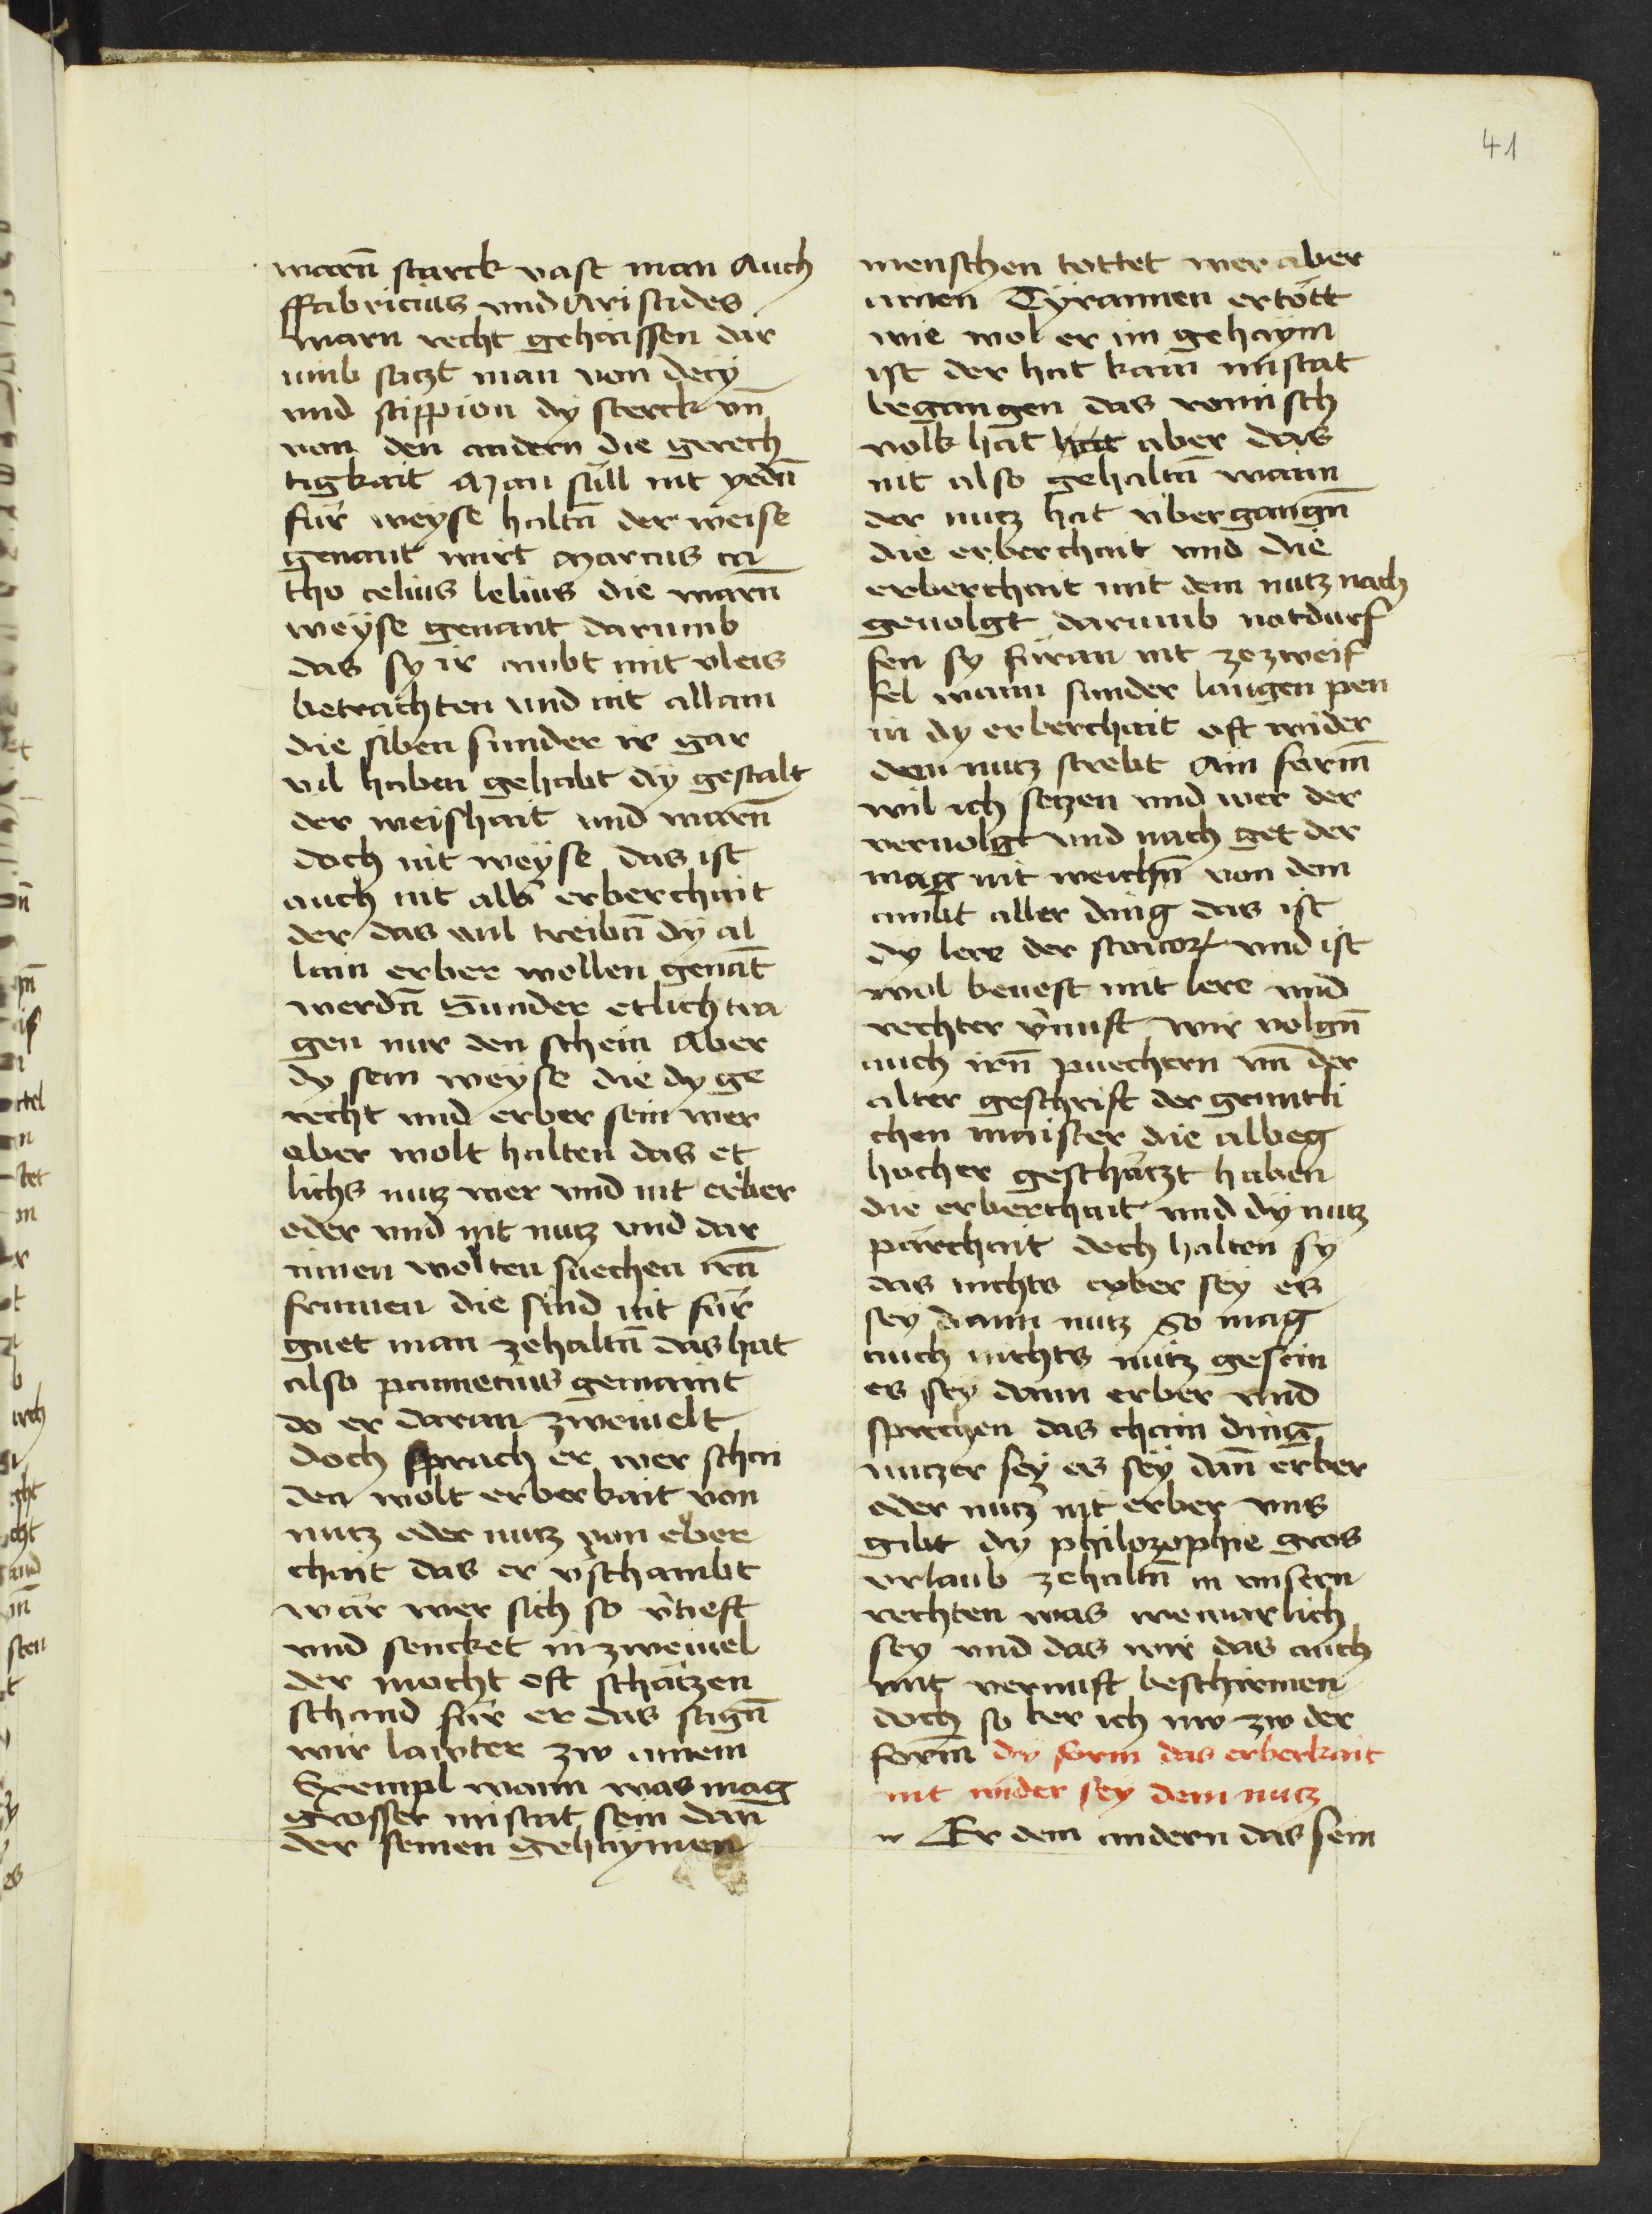 41
warn̄ starck vast man Auch
ffabricius vnd Aristides
warn recht gehaissen dar
umb satzt man von decÿ
vnd scippion dÿ sterck vn̄
von den andern die gerech
tigkait Man sull nit yedn̄
für weyse haltn̄ der weise
genant wirt Marcus ca
tho celius lelius die warn̄
weÿse genant darumb
das sy ir ambt mit vleis
betrachten vnd nit allain
die siben sunder ir gar
vil haben gehabt dÿ gestalt
der weishait vnd warn̄
doch nit weÿse das ist
auch nit alls erberchait
der das vnl treibn̄ dÿ al
lain erber wollen genāt
werdn̄ Sunder etlich tra
gen nur den schein Aber
dy sein weÿse die dy ge
recht vnd erber sein wer
aber wolt halten das et
lichs nutz wer vnd nit erber
oder vnd nit nutz vnd dar
innen wolten suechen irn̄
frumen die sind nit für
guet man zehaltn̄ das hat
also panneciuS gemaint
do er daran zweiuelt
doch sprach er wer schai
den wolt erberkait von
nutz oder nutz von erber
chait das er v̄schambt
wär wer sich so v̄tieft
vnd sencket in zweiuel
der mocht oft schätzen
schand für er das sagn̄
wir lawter zw ainem
Exempl wann was mag
grosser mistat sein dan̄
der seinen gehaÿmen
menschen tottet wer aber
ainen Tÿrannen ertött
wie wol er im gehaÿm
ist der hat kain mistat
begangen das romisch
volk hat hat aber das
nit also gehaltn̄ wann
der nutz hat vbergangn̄
die erberchait vnd die
erberchait mit dem nutz nach
geuolgt darumb notdurf
fen sy füran nit zezweif
fel wann sunder laugen pen
in dy erberchait oft wider
dem nutz strebt Ain form̄
wil ich setzen vnd wer der
veruolgt vnd nach get der
mag nit weichn̄ von dem
ambt aller ding das ist
dy lere der stoicoꝝ vnd ist
wol beuest mit lere vnd
rechter v̄nuft wir volgn̄
auch irn̄ puechern vn̄ der
alter geschrift der gruntli
chen maister die albeg
hocher geschätzt haben
die erberchait vnd dÿ nutz
pärchait doch halten sy
das nichts erber sey es
sey dann nutz So mag
auch nichts nütz gesein
es sey dann erber vnd
sprechen das chain ding
nutzer sey es sey dan̄ erber
oder nutz nit erber vns
gibt dy philozophie gros
vrlaub zehaltn̄ in vnsern
rechten was wewarlich
sey vnd das wir das auch
mit vernuft beschirmen
doch so ker ich nw zw der
form̄ dy form das erberkait
nit wider sey dem nutz
w Er dem andern das sein